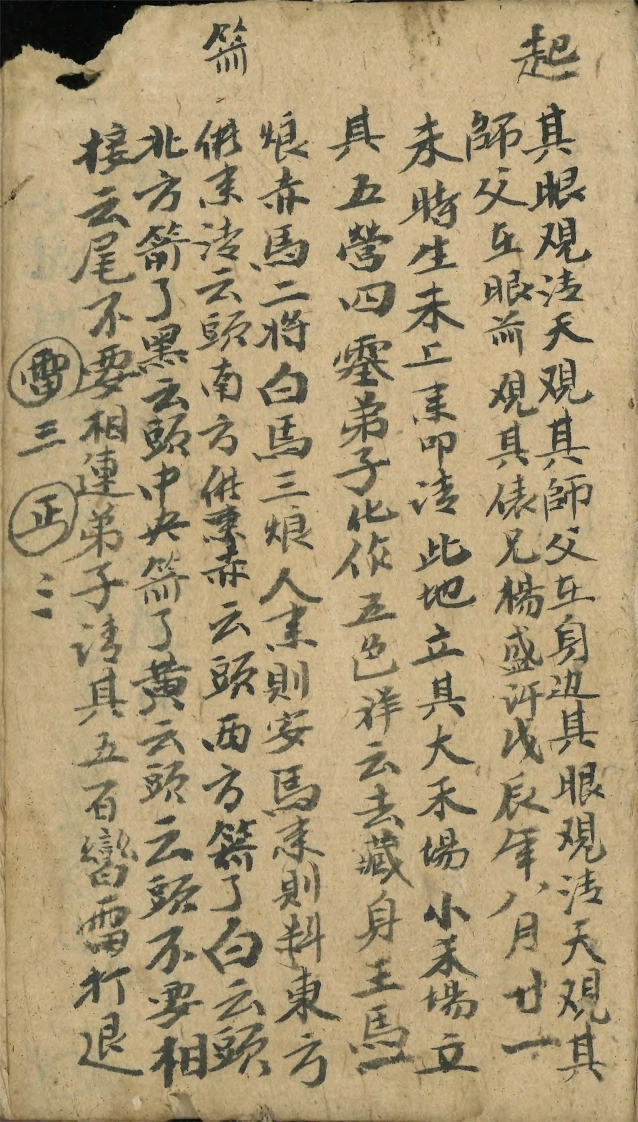 起
其眼观法天观其師父在身边其眼观法天观其
師父在眼前观其俵兄楊盛許戊辰年八月廿一
未時生未上来叩請此地立其大禾場小禾場立
其五營四寨弟子化作五色祥云去藏身王馬一
娘赤馬二将白馬三娘人来則安馬来則料東方
供来清云頭南方供来赤云頭西方箭了白云頭
北方箭了黑云頭中央箭了黄云頭云頭不要相
接云尾不要相連弟子請其五百蠻雷打退
箭
雷三正三